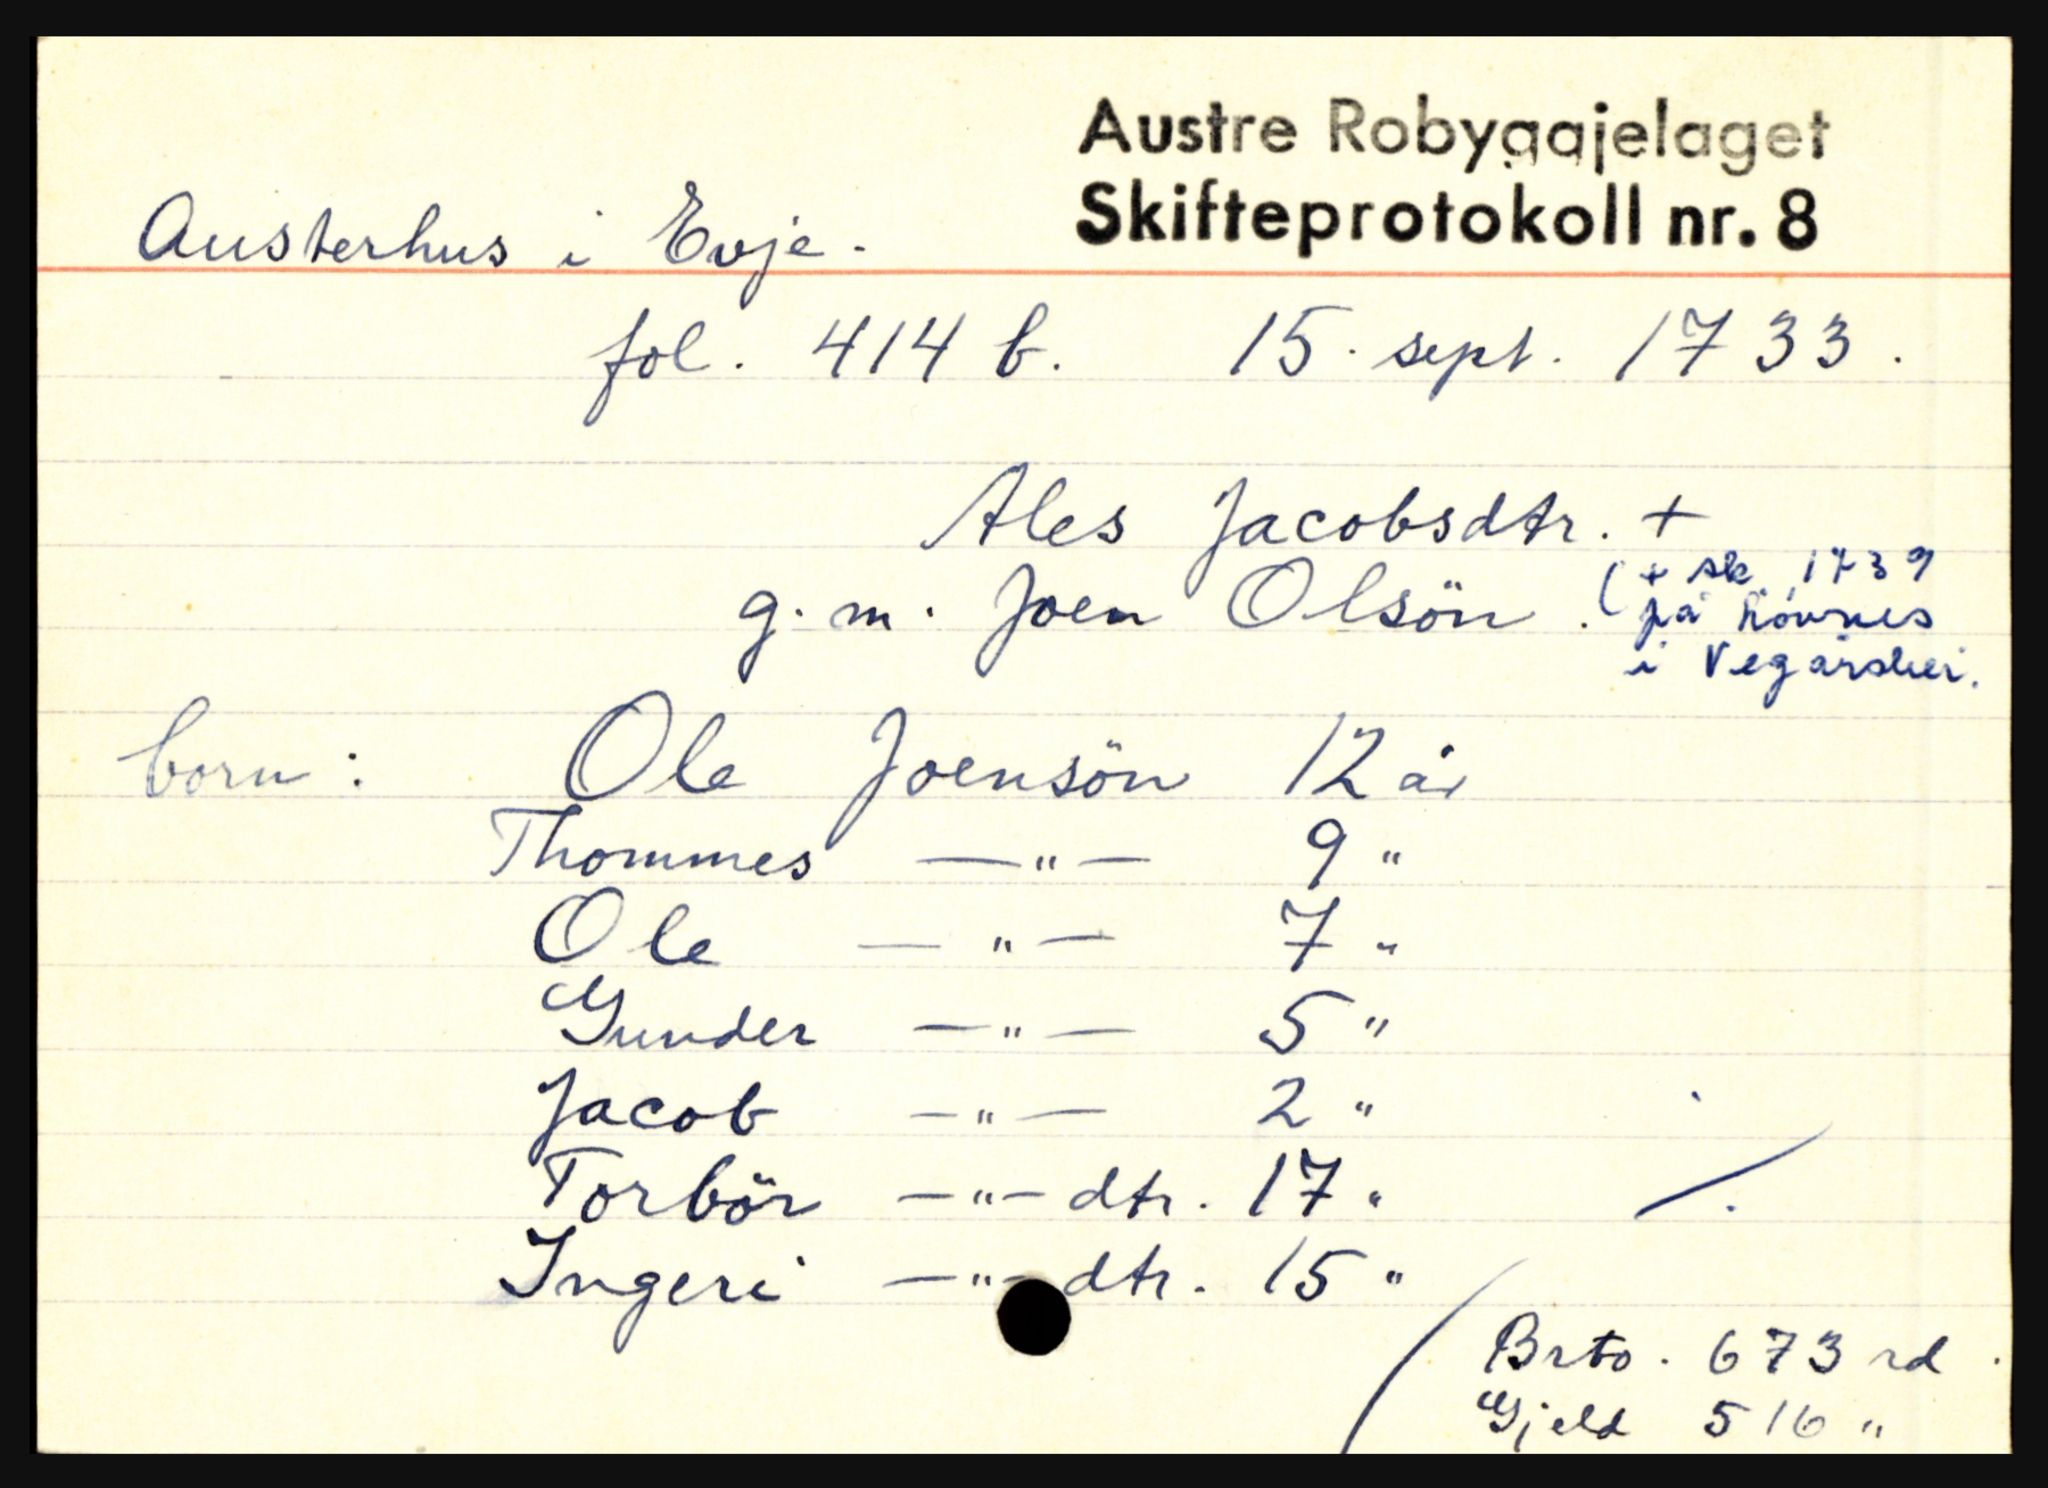 Austre Robyggjelaget
Skifteprotokoll nr. 8
Austerhus i Evje.
fol. 414 b. 15. sept. 1733.
Ales Jacobsdtr. +
g. m. Joen Olsön. (+ sk. 1739
på
i Vegårshei.
born: Ole Joensön 12 år
Thommes —"— 9 "
Ole —"— 7 "
Gunder —"— 5 "
Jacob —"— 2 "
Torbör —"— dtr. 17 "
Ingeri —"— dtr. 15 "
Brto. 673 rd.
Gjeld 516 "